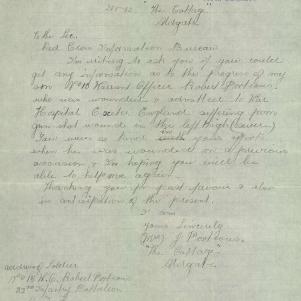 "The Cottage"
Norgate
To the Sec.
Red Cross Information Bureau
I'm writing to ask you if you could
get any information as to the progress of my
son No 18 Warrant Officer Robert Porteous.
who was wounded & admitted to War
Hospital Exeter England suffering from
gun shot wound in the left thigh (severe)
You were so kind with your efforts
when he was wounded on a previous
occasion & I'm hoping you will be
able to help me again.
Thanking you for past favours & also
in anticipation of the present.
I am
Yours Sincerely
J Porteous.
"The Cottage"
Norgate
address of Soldier
No 18 W.O. Robert Porteous
23rd Infantry Battalion